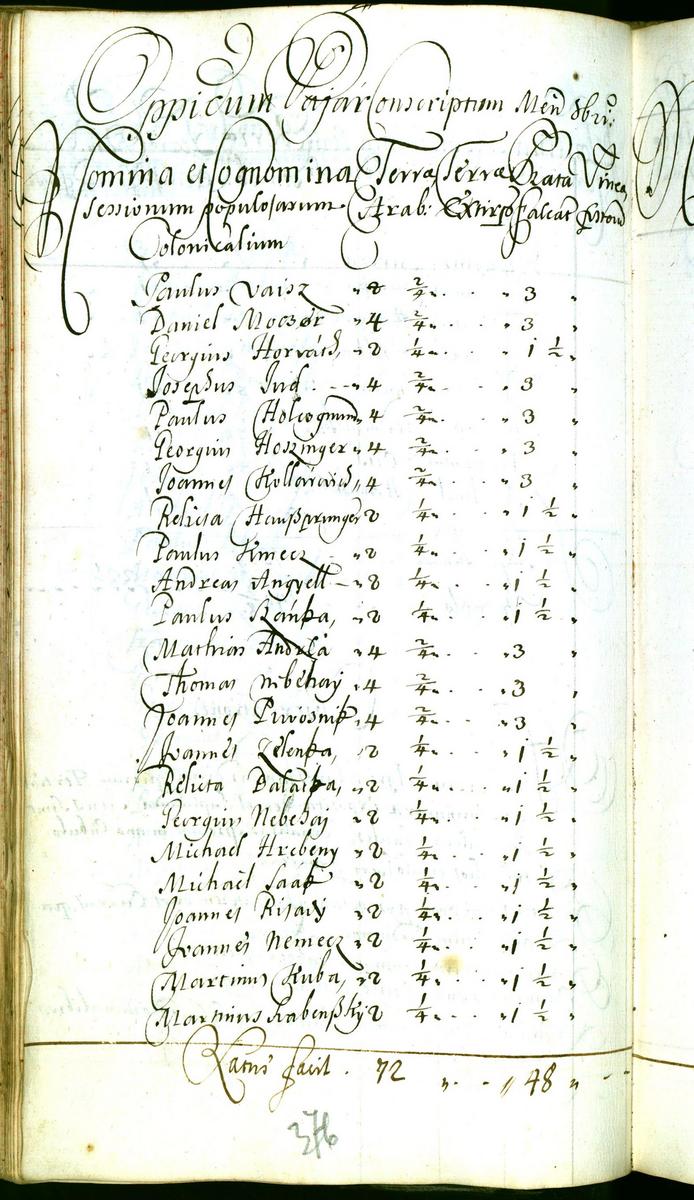 Oppidum Gajar Conscriptum Men 8bri:
Nomina et Cognomina Terræ Terræ Prata Vinea
Sessionum populosarum Arab: Extirp Falcat Fosso
Colonicalium
Paulus Vaisz „ 8 2/4 „ 3 „
Daniel Moczor „ 4 2/4 „ 3 „
Georgius Horváth, „ 2 1/4 „ 1 1/2 „
Josephus Jud „ 4 2/4 „ 3 „
Paulus „ 4 2/4 „ 3 „
Georgius Hoszinger „ 4 2/4 „ 3 „
Joannes Kollarovich „ 4 2/4 „ 3 „
Relicta Haußpringer 2 1/4 „ 1 1/2 „
Paulus Kmecz „ 2 1/4 „ 1 1/2 „
Andreas Angyell „ 2 1/4 „ 1 1/2 „
Paulus Bánka, „ 2 1/4 „ 1 1/2 „
Mathias Andrla „ 4 2/4 „ 3 „
Thomas Nebehaj „ 4 2/4 „ 3 „
Joannes Pivosnik „ 4 2/4 „ 3 „
Joannes Zelenka, „ 2 1/4 „ 1 1/2 „
Relicta Balaska, „ 2 1/4 „ 1 1/2 „
Georgius Nebehaj „ 2 1/4 „ 1 1/2 „
Michael Hrebeny „ 2 1/4 „ 1 1/2 „
Michael Saak „ 2 1/4 „ 1 1/2 „
Joannes Risaÿ „ 2 1/4 „ 1 1/2 „
Joannes Nemecz „ 2 1/4 „ 1 1/2 „
Martinus Kuba, „ 2 1/4 „ 1 1/2 „
Martinus Rabenßky 2 1/4 „ 1 1/2 „
Latus facit . 72 „ „ 48 „
376